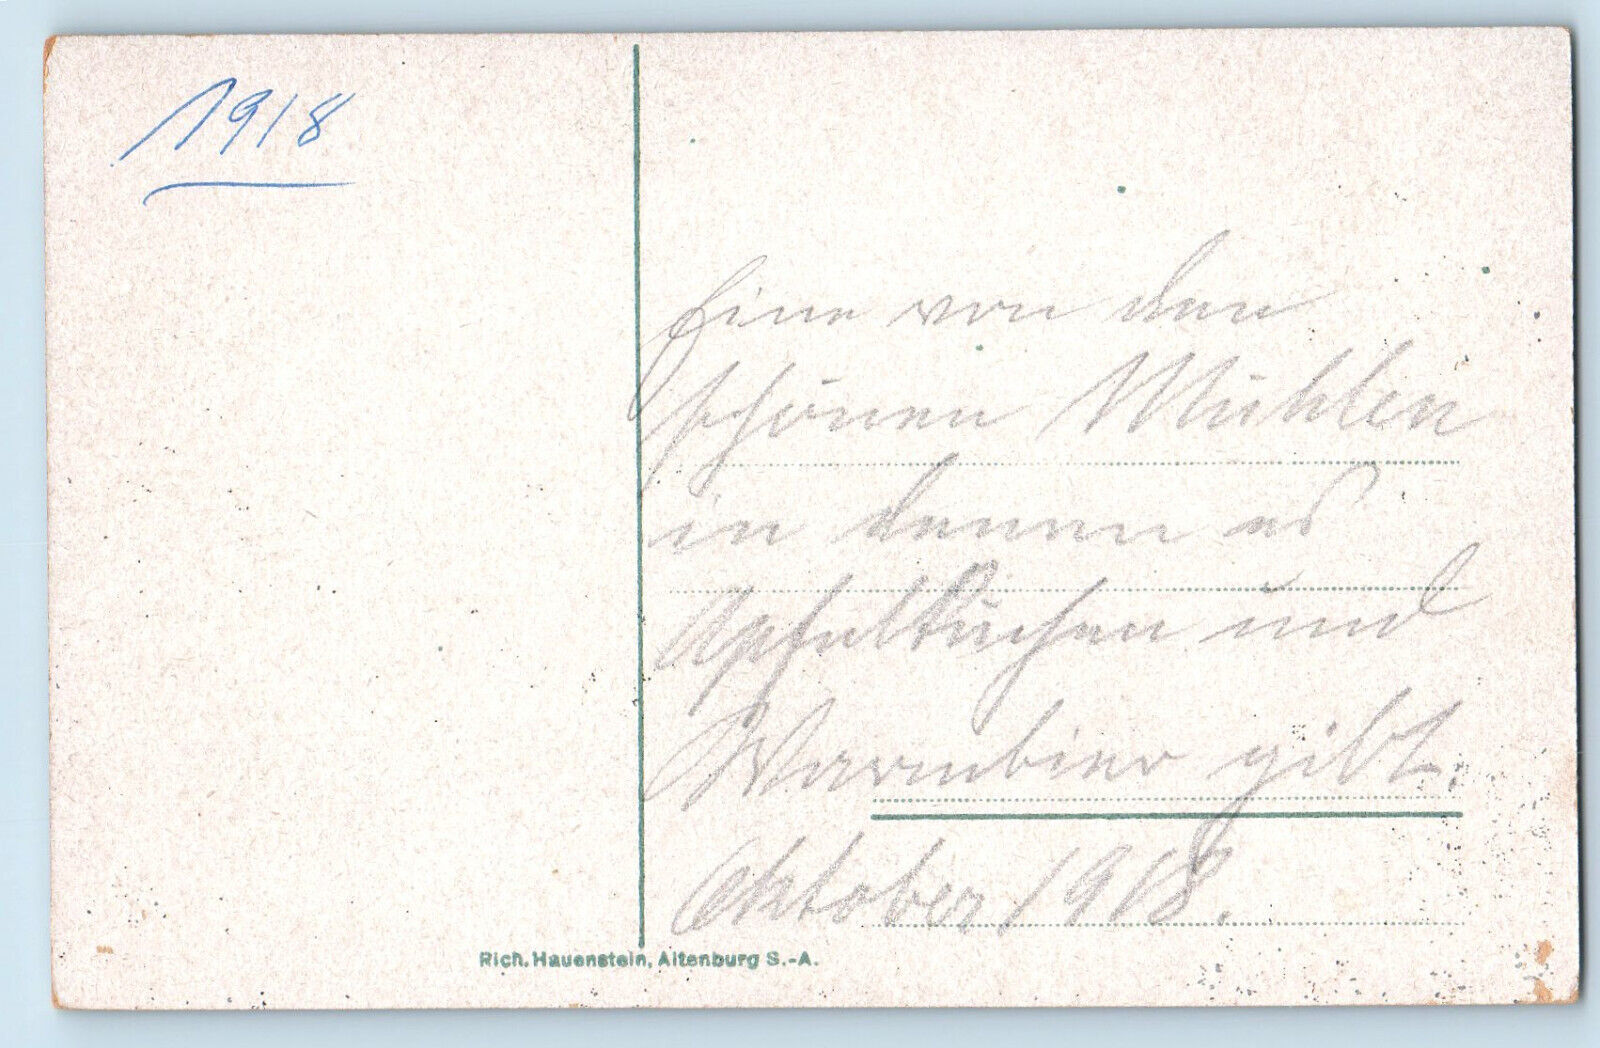 1918
Eine von den
schönen Mühlen
in denen es
Apfelkuchen und
Warmbier gibt.
Oktober 1918.
Rich. Hauenstein, Altenburg S.-A.